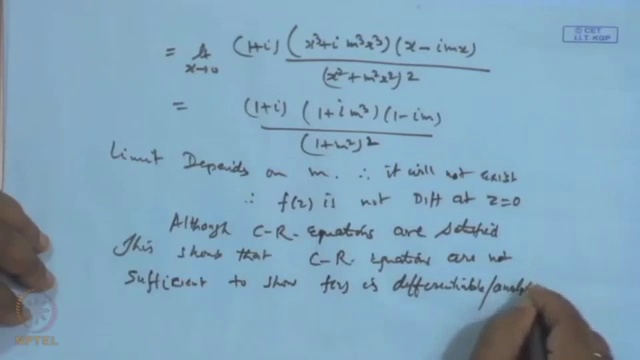 © CET
I.I.T. KGP
= lt x→0 (1+i) (x³+i m³x³) (x-imx) / (x²+m²x²)2
= (1+i) (1+im³) (1-im) / (1+m²)2
Limit Depends on m. ∴ it will not exist
∴ f(z) is not Diff at z=0
Although C-R. Equations are satisfied
This shows that C-R. Equations are not
sufficient to show f(z) is differentiable/
NPTEL